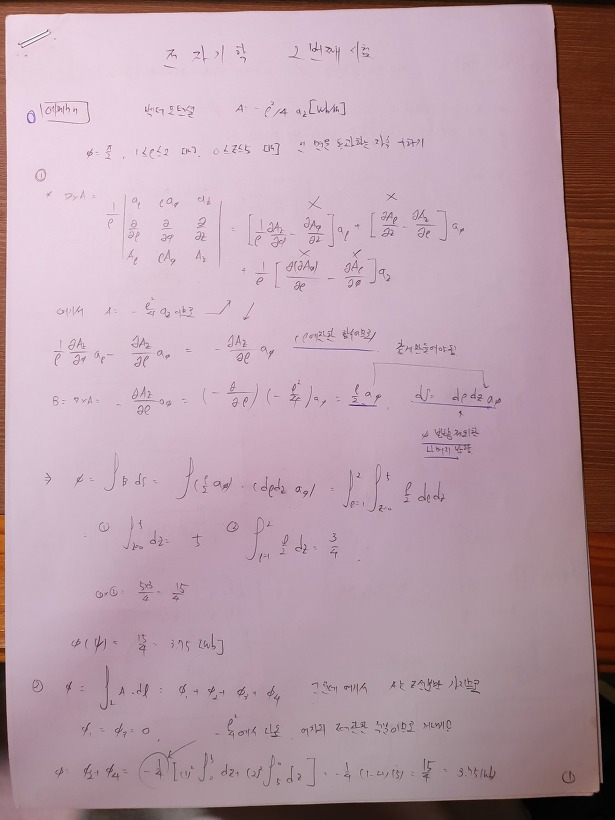 전자기학 2번째 시험
예제 벡터 포텐셜 A = -ρ²/4 a_z [Wb/m]
φ = π/2, 1≤ρ≤2 [m], 0≤z≤5 [m] 인 면을 통과하는 자속 구하기
①
* ∇×A = 1/ρ | a_ρ ρa_φ a_z ; ∂/∂ρ ∂/∂φ ∂/∂z ; A_ρ ρA_φ A_z | = [1/ρ ∂A_z/∂φ - ∂A_φ/∂z] a_ρ + [∂A_ρ/∂z - ∂A_z/∂ρ] a_φ
+ 1/ρ [∂(ρA_φ)/∂ρ - ∂A_ρ/∂φ] a_z
에서 A = -ρ²/4 a_z 이므로
1/ρ ∂A_z/∂φ a_ρ - ∂A_z/∂ρ a_φ = -∂A_z/∂ρ a_φ (ρ에 관한 함수이므로)
B = ∇×A = -∂A_z/∂ρ a_φ = (-∂/∂ρ)(-ρ²/4) a_φ = ρ/2 a_φ. ds = dρdz a_φ
φ 방향 제외한
나머지 방향
⇒ φ = ∫B ds = ∫(ρ/2 a_φ)·(dρdz a_φ) = ∫_{ρ=1}^{2} ∫_{z=0}^{5} ρ/2 dρdz
① ∫_{z=0}^{5} dz = 5 ② ∫_{ρ=1}^{2} ρ/2 dz = 3/4.
①×② = 5×3/4 = 15/4
φ(ψ) = 15/4 = 3.75 [Wb]
② φ = ∫_L A·dl = φ₁ + φ₂ + φ₃ + φ₄ 그런데 에서 A는 z성분만 가지므로
φ₁ = φ₃ = 0, -ρ²/4에서 나옴
φ = φ₂ + φ₄ = -1/4 [(1)² ∫_0^5 dz + (2)² ∫_5^0 dz] = -1/4 (1-4)(5) = 15/4 = 3.75 [Wb]
①